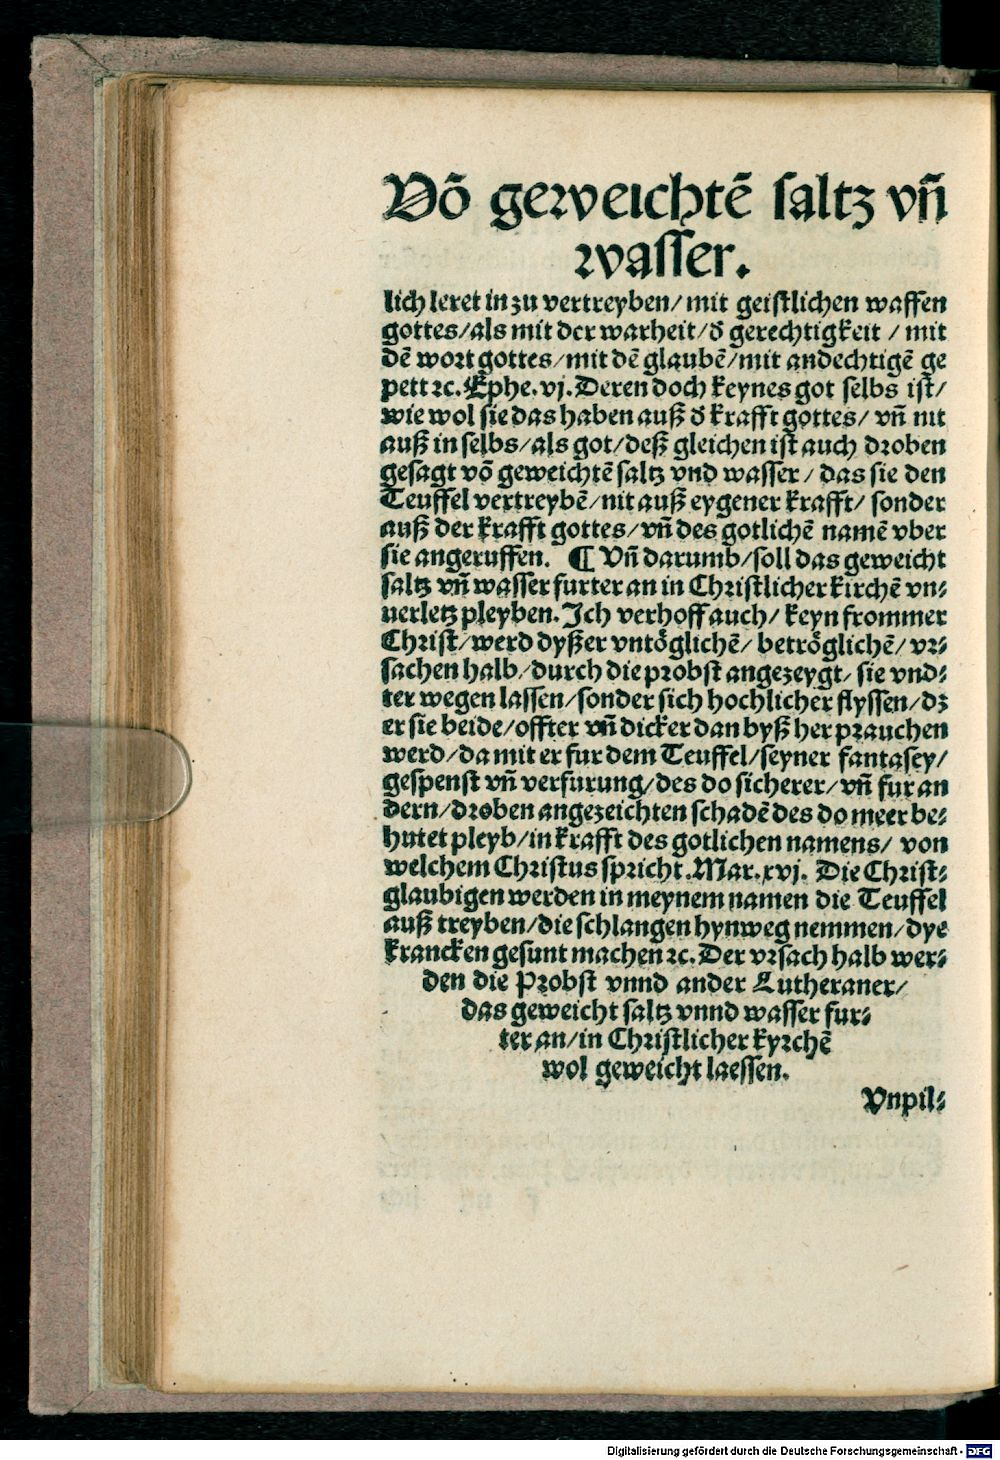 Võ geweichtẽ saltz vñ
wasser.
lich leret in zu vertreyben/ mit geistlichen waffen
gottes/als mit der warheit/ď gerechtigkeit / mit
dẽ wort gottes/mit dẽ glaubẽ/mit andechtigẽ ge
pett ꝛc. Ephe.vj. Deren doch keynes got selbs ist/
wie wol sie das haben auß ď krafft gottes/ vñ nit
auß in selbs/als got/deß gleichen ist auch droben
gesagt võ geweichtẽ saltz vnd wasser/ das sie den
Teuffel vertreybẽ/nit auß eygener krafft/ sonder
auß der krafft gottes/vñ des gotlichẽ namẽ vber
sie angeruffen. ¶ Vñ darumb/soll das geweicht
saltz vñ wasser furter an in Christlicher kirchẽ vn⸗
uerletz pleyben. Ich verhoff auch/ keyn frommer
Christ/werd dyßer vntöglichẽ/ betröglichẽ/ vr⸗
sachen halb/durch die probst angezeygt/ sie vnd⸗
ter wegen lassen/sonder sich hochlicher flyssen/dz
er sie beide/offter vñ dicker dan byß her prauchen
werd/da mit er fur dem Teuffel/seyner fantasey/
gespenst vñ verfurung/des do sicherer/vñ fur an
dern/droben angezeichten schadẽ des do meer be⸗
hutet pleyb/in krafft des gotlichen namens/ von
welchem Christus spricht.Mar.xvj. Die Christ⸗
glaubigen werden in meynem namen die Teuffel
auß treyben/die schlangen hynweg nemmen/dye
krancken gesunt machen ꝛc. Der vrsach halb wer⸗
den die Probst vnnd ander Lutheraner/
das geweicht saltz vnnd wasser fur⸗
ter an/in Christlicher kyrchẽ
wol geweicht laessen.
Vnpil⸗
Digitalisierung gefördert durch die Deutsche Forschungsgemeinschaft - DFG